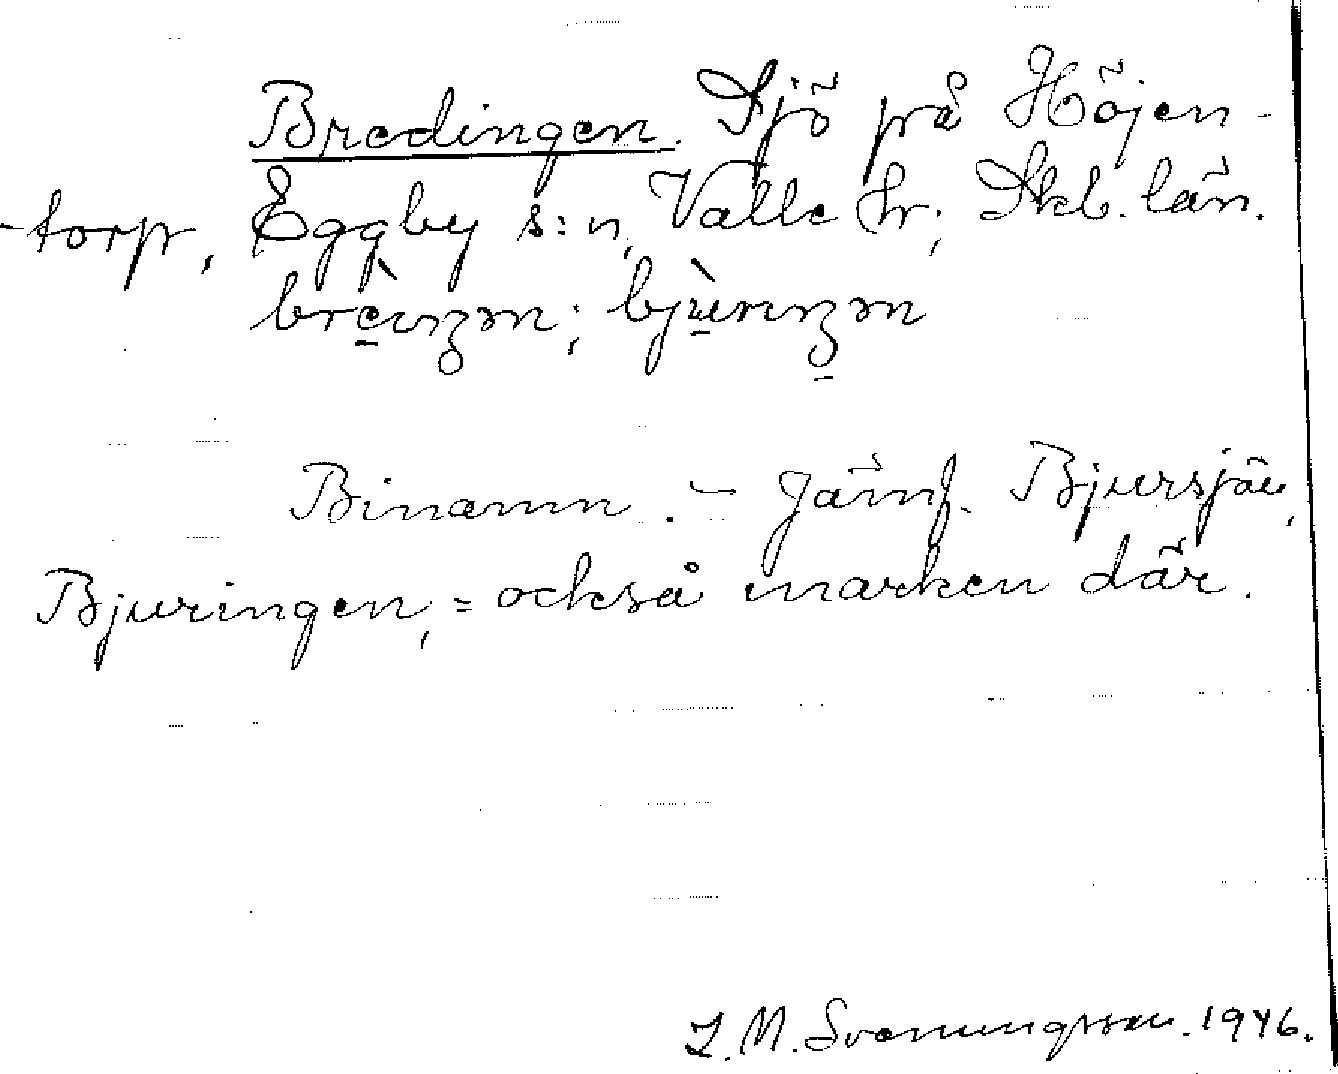 Bredingen. Sjö på Höjen-
-torp, Eggby s:n, Valle hr; Skb. län.
Binamn. – Jämf. Bjursjön,
Bjuringen, = också marken där.
L. M. Svenungsson. 1946.